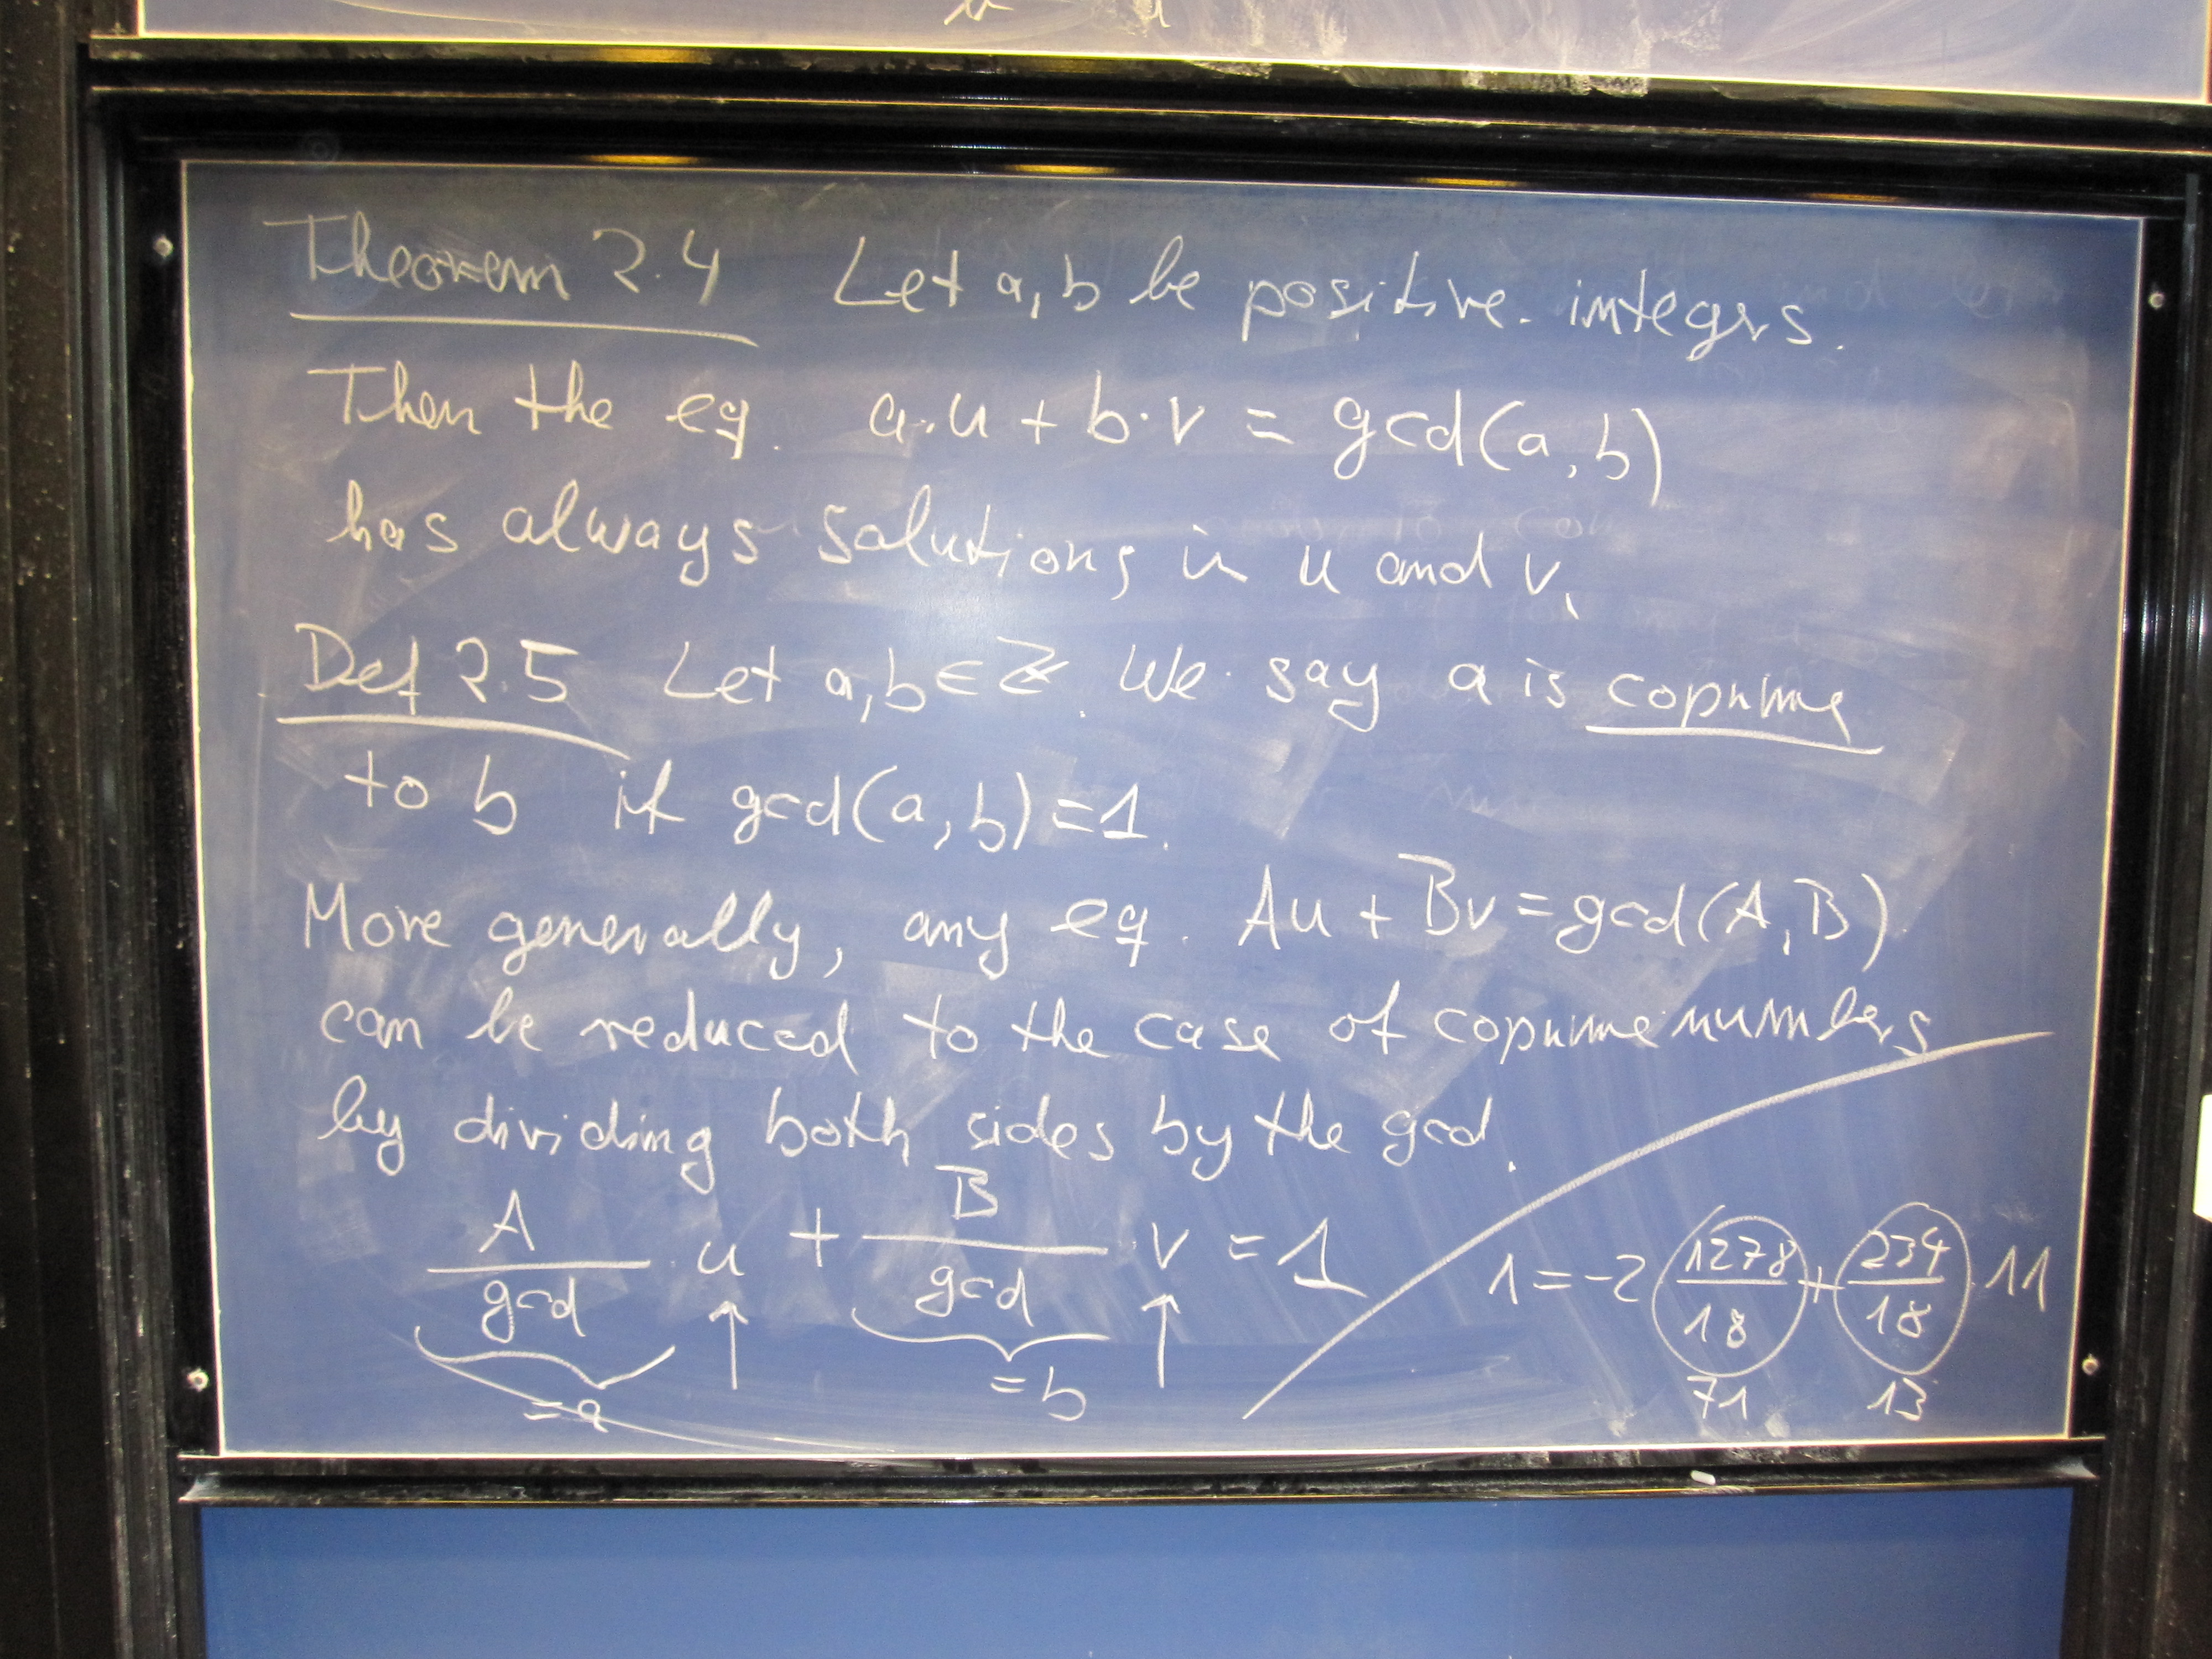 Theorem 2.4 Let a, b be positive integrs.
Then the eq. a·u + b·v = gcd(a, b)
has always solutions in u and v.
Def 2.5 Let a, b ∈ ℤ. We say a is coprime
to b if gcd(a, b) = 1.
More generally, any eq. Au + Bv = gcd(A, B)
can be reduced to the case of coprime numbers
by dividing both sides by the gcd.
A/gcd · u + B/gcd · v = 1
↑ ↑
= a = b
1 = -2 1278/18 + 234/18 · 11
71 13